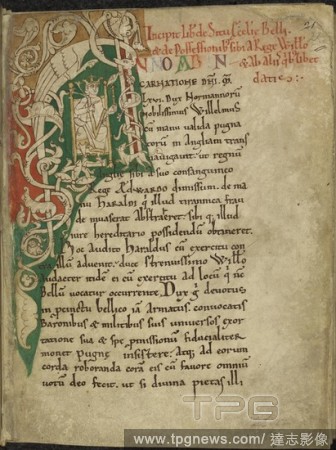 Incipit lib de Situ Ecclie Belli
& de Possessionib; sibi a Rege Willo
& ab aliis qb;libet
datis:
NNO AB IN
CARNATIONE DNI
LXVI. Dux Normannorū
nobilissimus Willelmus
cū manu ualida pugna
torū in Angliam trans
nauigauit. ut regnū
Angliae sibi a suo consanguineo
Rege ÆDWARDO dimissum. de ma
nu HARALDI qi illud tirannica frau
de inuaserat abstraeret. sibi q; illud
iure hereditario possidendū obtineret.
Hoc Audito Haraldus cū exercitu con
Bellū aduenit. duce strenuissimo Willo
audacter itidē ei cū exercitu ad locū q nc
Bellū uocatur occurrente. Dux g deuotus.
in peruetu bellico iā Armatus. conuocatis
Baronibus & militibus suis uniuersos exor
tatione sua & spe pmissionū fiducialiter
monet pugne insistere. Atq; ad eorum
corda roboranda corā eis cū fauore omniū
uotū deo fecit. ut si diuina pietas illi
TPG
www.tpgnews.com/達志影像